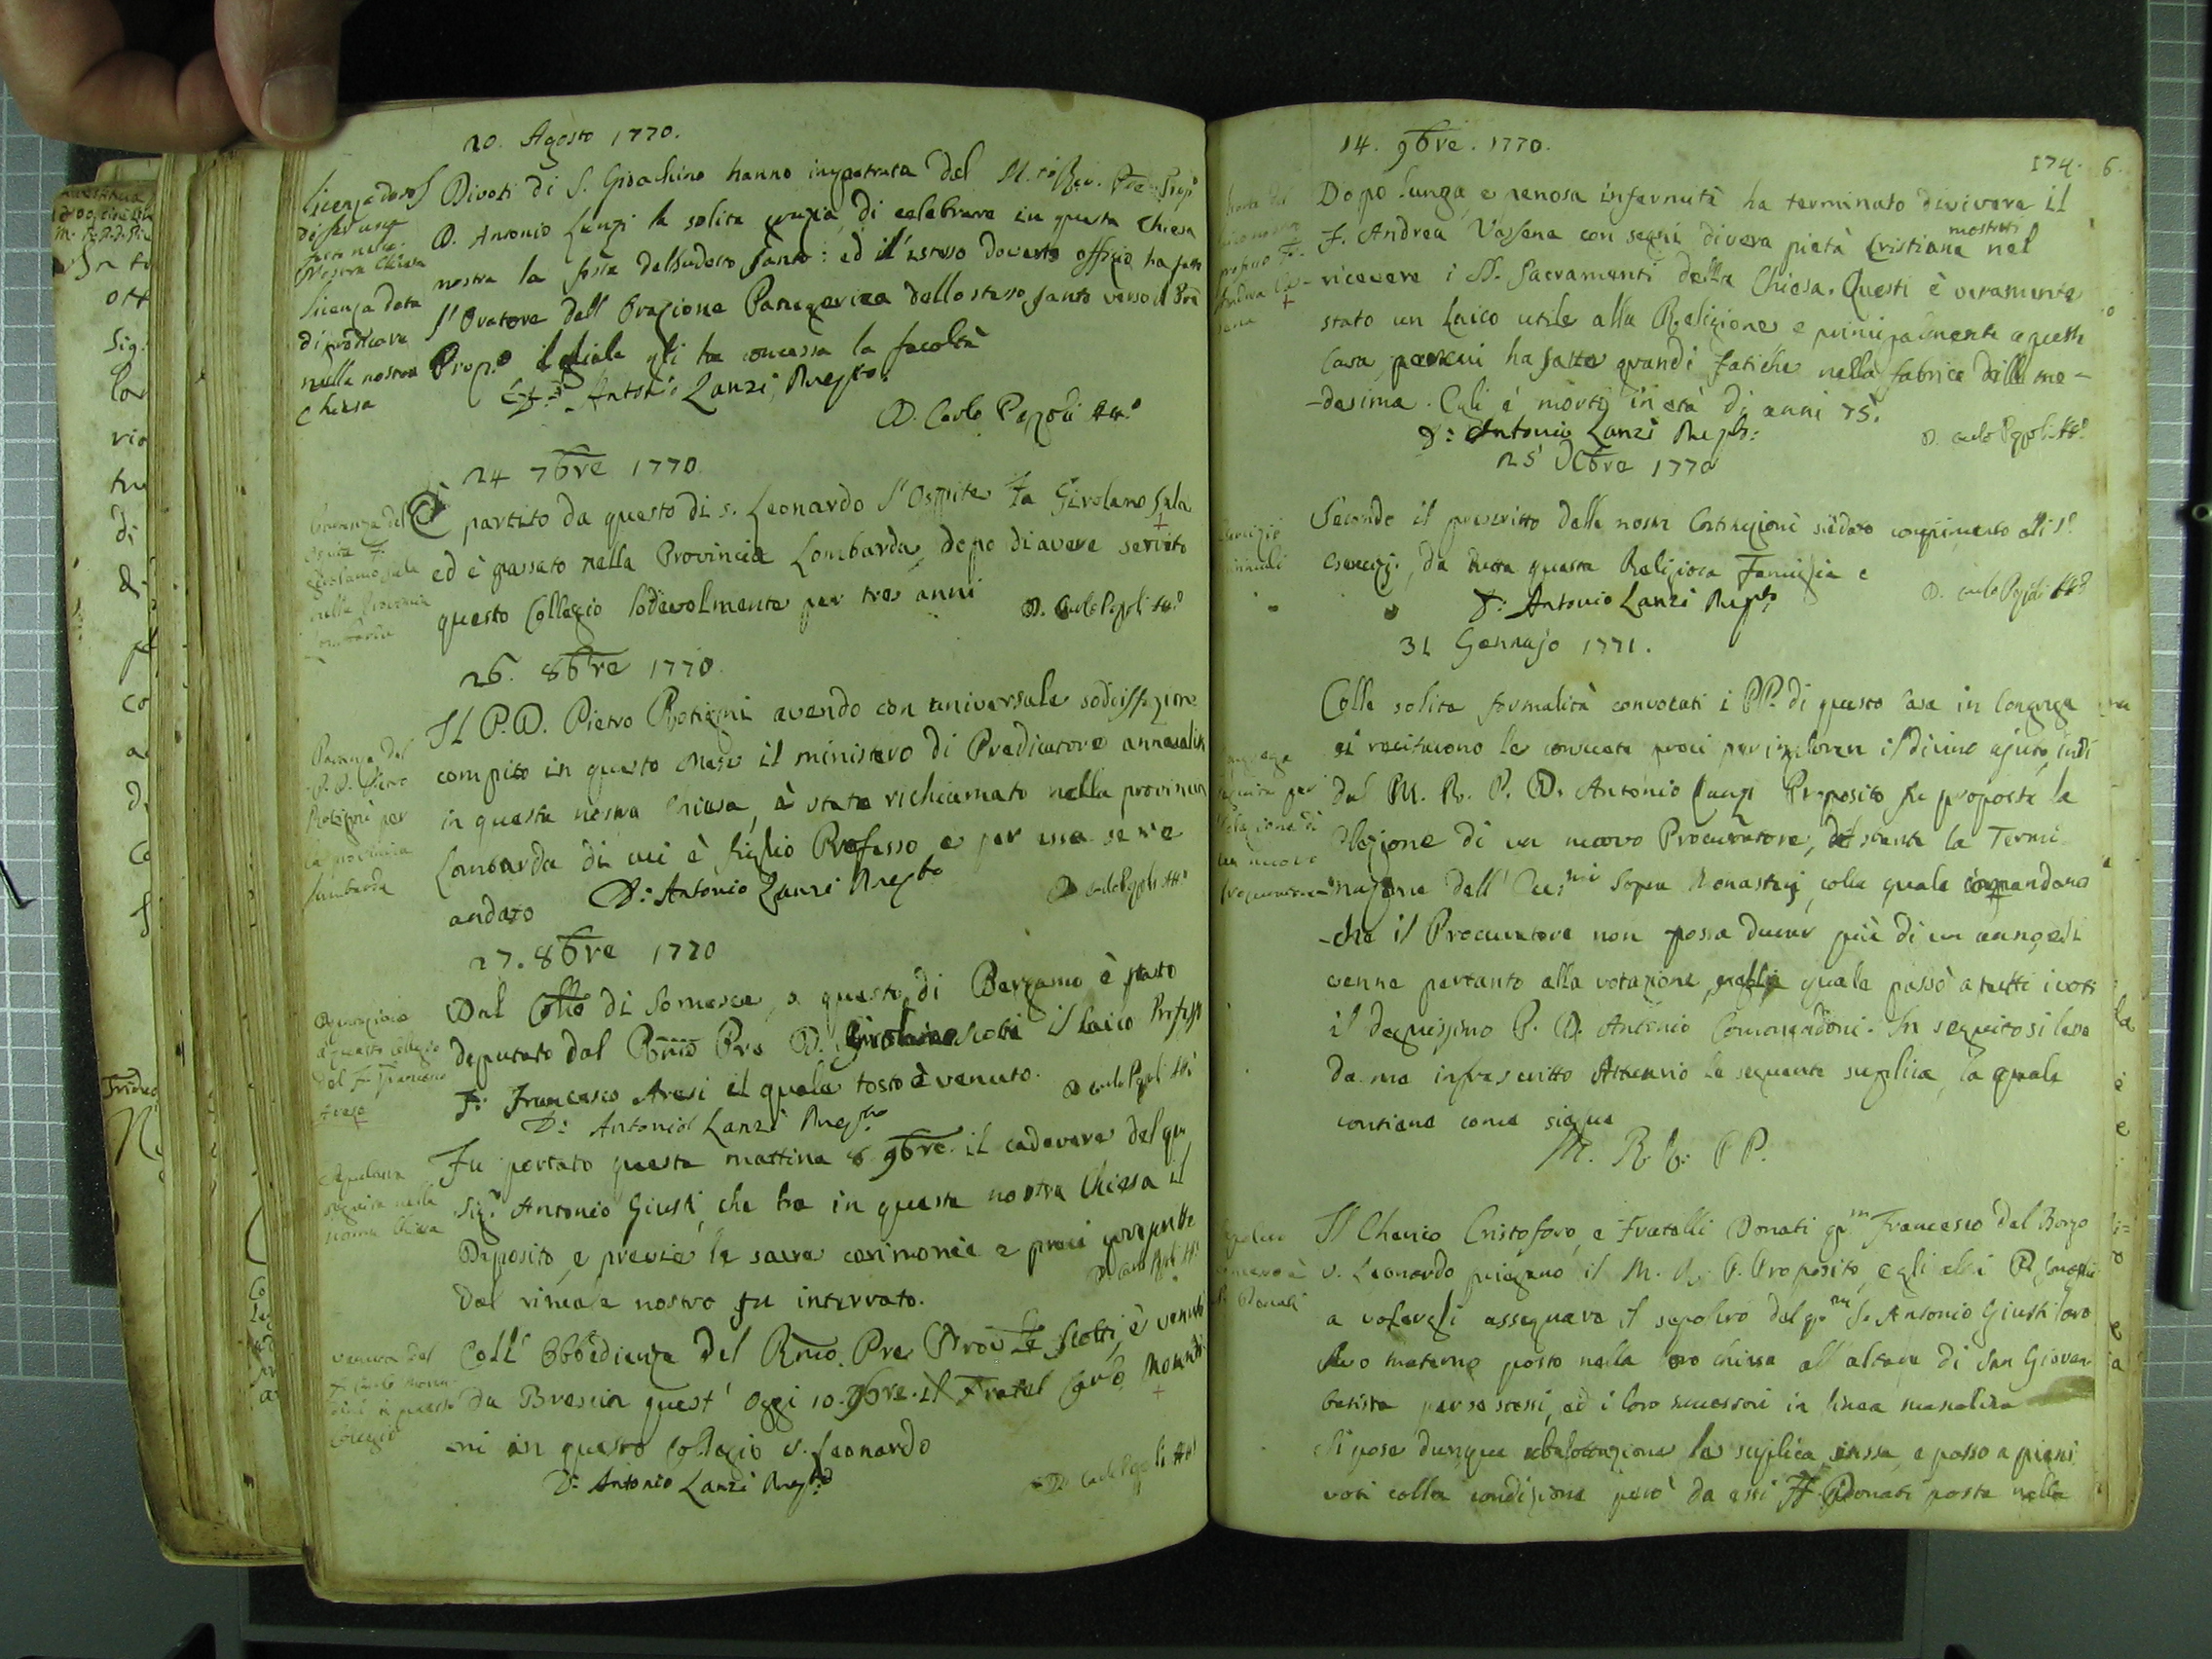 20. Agosto 1770.
Licenza
di far una
festa nella
Nostra Chiesa
Licenza data
di predicare
nella nostra
Chiesa
Divoti di S. Gioachino hanno impetrata del M. to Rev. Pre Prep.o
D. Antonio Lanzi la solita grazia, di celebrare in questa Chiesa
nostra la festa del sudetto Santo: ed il l'istesso doveroso offizio ha fatto
l'Oratore dell'Orazione Panegerica dello stesso Santo verso il Pre
Prop.o il quale gli ha concessa la facoltà
D. Antonio Lanzi Prep.to
D. Carlo Pepoli Att.o
24 7bre 1770.
Partenza del
Ospite F.
Girolamo Sala
nella Provincia
Lombarda
È partito da questo di S. Leonardo l'Ospite Fra Girolamo Sala
ed è passato nella Provincia Lombarda, dopo di avere servito
questo Collegio lodevolmente per tre anni
D. Carlo Pepoli Att.o
26. 8bre 1770.
Partenza del
P. D. Pietro
Rotigni per
la provincia
Lombarda
Il P. D. Pietro Rotigni avendo con universale sodisfazione
compito in questo Mese il ministero di Predicatore annualista
in questa nostra Chiesa, è stato richiamato nella provincia
Lombarda di cui è figlio Professo e per essa se n'è
andato
D: Antonio Lanzi Prep.to
D. Carlo Pepoli Att.o
27. 8bre 1770
a questo Collegio
del F. Francesco
Aresi
Dal Coll.o di Somasca, a questo di Bergamo è stato
deputato dal Rmo Pre D. Girolamo Scoti il laico Professo
F: Francesco Aresi il quale tosto è venuto.
D. Carlo Pepoli Att.o
D: Antonio Lanzi Prep.to
Sepoltura
seguita nella
nostra Chiesa
Fu portato questa mattina 8 9bre. il cadavere del qu
Sig.r Antonio Giusti, che ha in questa nostra Chiesa il
Deposito, e previe le sacre cerimonie e preci
D. Carlo Pepoli Att.o
dal rituale nostro fu interrato.
Venuta del
F. Carlo
in questo
Collegio
Coll' Obbedienza del Rmo. Pre Prov.le Scotti, è venuto
da Brescia quest' oggi 10. 9bre. il Fratel Carlo
ni in questo Collegio S. Leonardo
D: Antonio Lanzi Prep.to
D. Carlo Pepoli Att.o
14. 9bre. 1770.
174. 6.
Morte del
laico nostro
professo F.
Andrea Vas-
sena
Dopo lunga, e penosa infermità ha terminato di vivere il
F. Andrea Vassena con segni di vera pietà Cristiana mostrati nel
ricevere i SS. Sacramenti della Chiesa. Questi è veramente
stato un Laico utile alla Religione e principalmente a questa
Casa, per cui ha fatte grandi fatiche nella fabrica della me-
-desima. Egli è morto in età di anni 75.
D: Antonio Lanzi Prep.to:
D. Carlo Pepoli Att.o
25 Xbre 1770
Esercizi
annuali
Secondo il prescritto delle nostre Costituzioni si è dato compimento alli S.i
Esercizj, da tutta questa Religiosa Famiglia e
D. Carlo Pepoli Att.o
D: Antonio Lanzi Prep.to
31 Gennajo 1771.
Colle solite formalità convocati i PP. di questa Casa in Congrega
si recitarono le consuete preci per implorare il divino ajuto, indi
dal M. R. P. D. Antonio Lanzi Preposito fu proposta la
Elezione di un nuovo Procuratore, stante la Termi
nazione dell' Ecc.mi Sopra Monasterj, colla quale comandano
-che il Procuratore non possa durar più di un anno, e si
venne pertanto alla votazione, nella quale passò a tutti i voti
il degnissimo P. D. Antonio Comendoni. In seguito si lesse
da me infrascritto Attuario la seguente suplica, la quale
contiene come siegue
M. R. R: P P.
Sepolcro
concesso a
Donati
Il Cherico Cristoforo, e Fratelli Donati qu.m Francesco del Borgo
S. Leonardo pregano il M. R. P. Preposito, e gli altri PP.
a volergli assegnare il sepolcro del qu.m S.r Antonio Giusti loro
Avo materno posto nella loro chiesa all altare di San Giovan
batista per se stessi, ed i loro successori in linea mascolina
Si pose dunque a ballottazione la suplica, e passò a pieni
voti colla condizione però da essi FF. Donati posta nella